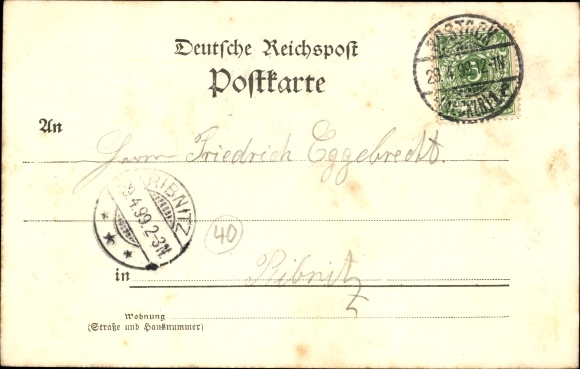 Deutsche Reichspost
Postkarte
ROSTOCK
29.4.99.12-1N.
(MECKLB)
5
An
Herrn Friedrich Eggebrecht.
RIBNITZ
29.4.99.2-3N.
40
in Ribnitz
Wohnung
(Straße und Hausnummer)